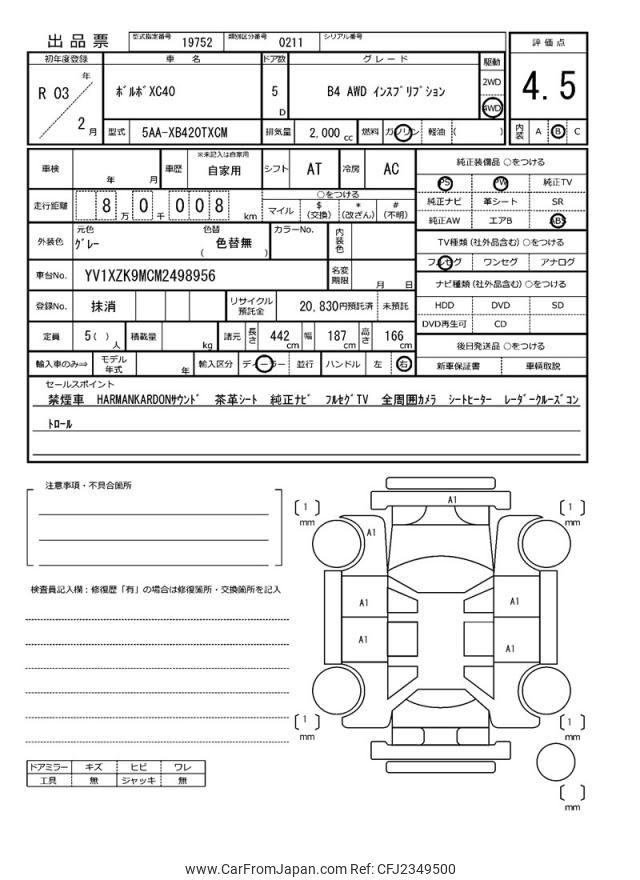 出品票
型式指定番号 19752 類別区分番号 0211 シリアル番号
評価点
4.5
内装 A B C
初年度登録 車名 ドア数 グレード 駆動
R 03 年 2 月
ボルボXC40
5 D
B4 AWD インスクリプション
2WD
4WD
型式 5AA-XB420TXCM 排気量 2,000 cc 燃料 ガソリン 軽油 ( )
車検 年 月 車歴 ※未記入は自家用 自家用 シフト AT 冷房 AC
走行距離 8 万 0 千 0 0 8 km
○をつける
マイル $ (交換) * (改ざん) # (不明)
外装色 元色 グレー 色替 色替無 ( ) カラーNo. 内装色
車台No. YV1XZK9MCM2498956 名変期限 月 日
登録No. 抹消 リサイクル預託金 20,830円預託済 未預託
定員 5( ) 人 積載量 kg 諸元 長さ 442 cm 幅 187 cm 高さ 166 cm
輸入車のみ⇒ モデル年式 年 輸入区分 ディーラー 並行 ハンドル 左 右
純正装備品 ○をつける
PS PW 純正TV
純正ナビ 革シート SR
純正AW エアB ABS
TV種類 (社外品含む) ○をつける
フルセグ ワンセグ アナログ
ナビ種類 (社外品含む) ○をつける
HDD DVD SD
DVD再生可 CD
後日発送品 ○をつける
新車保証書 車輌取説
セールスポイント
禁煙車 HARMANKARDONサウンド 茶革シート 純正ナビ フルセグTV 全周囲カメラ シートヒーター レーダークルーズコン
トロール
注意事項・不具合箇所
検査員記入欄：修復歴「有」の場合は修復箇所・交換箇所を記入
ドアミラー キズ ヒビ ワレ
工具 無 ジャッキ 無
A1
[ 1 ] mm
[ 1 ] mm
A1
A1
A1
A1
A1
[ 1 ] mm
[ 1 ] mm
[ ] mm
www.CarFromJapan.com Ref: CFJ2349500